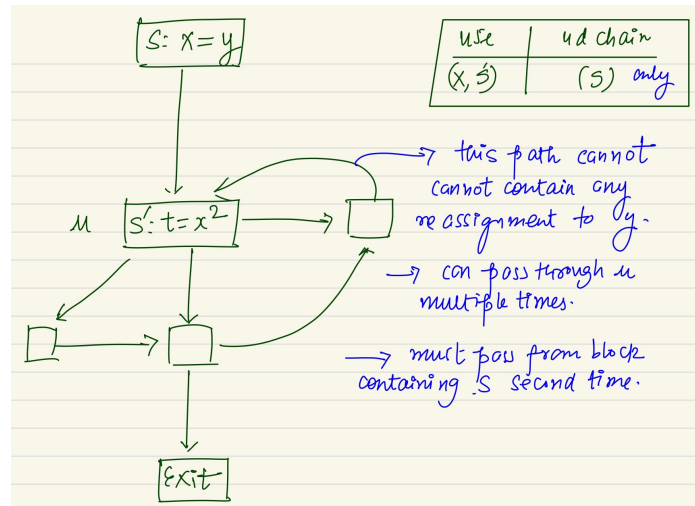 S: x = y
use ud chain
(x, s') (S) only
→ this path cannot
cannot contain any
re assignment to y.
u S': t = x²
→ can pass through u
multiple times.
→ must pass from block
containing S second time.
Exit